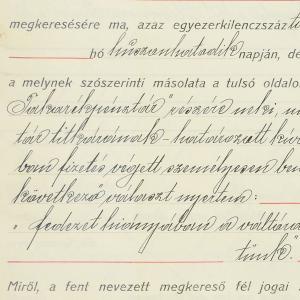 megkeresésére ma, azaz egyezerkilenczszáz
hó huszonhatodik napján, de
a melynek szószerinti másolata a tulsó oldalo
Takarékpénztár" részére neki,
tár titkárának határozott kív
bani fizetés végett személyesen be
következő választ nyertem:
"fedezet hiányában a váltóna
tünk."
Miről, a fent nevezett megkereső fél jogai